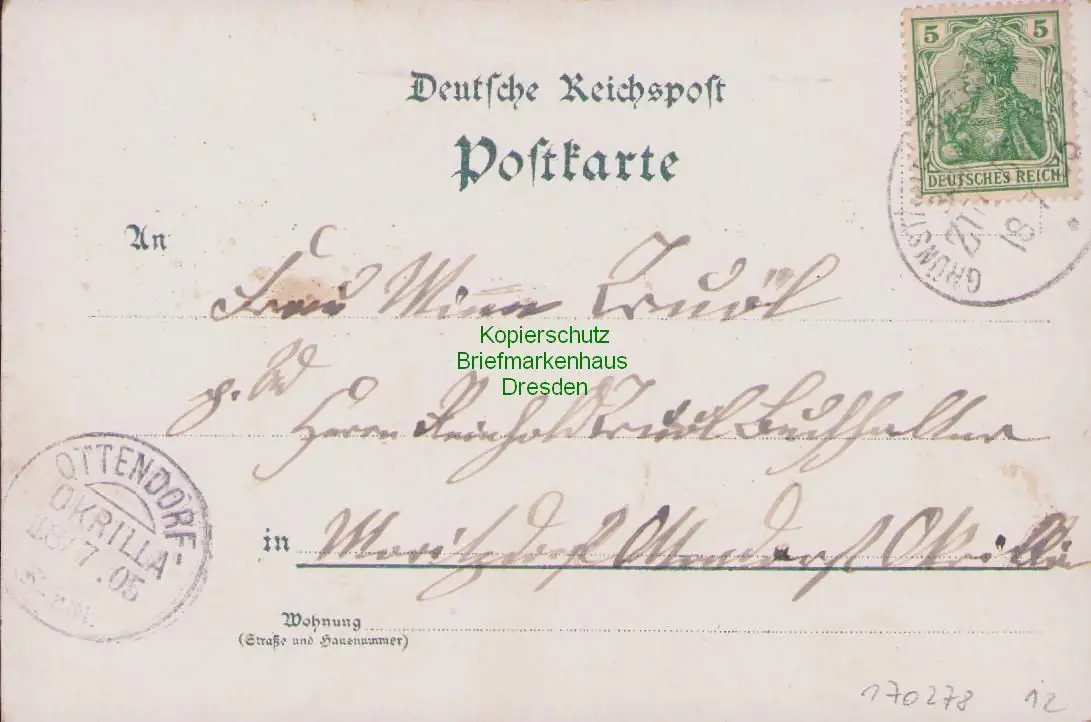 5 5
DEUTSCHES REICH
Deutsche Reichspost
Postkarte
An
Frau Minna
Kopierschutz
Briefmarkenhaus
Dresden
Herrn Reinhold Buchhalter
OTTENDORF-
OKRILLA
18/7.05
in Moritzdorf Ottendorf Okrilla
Wohnung
(Straße und Hausnummer)
170278 12